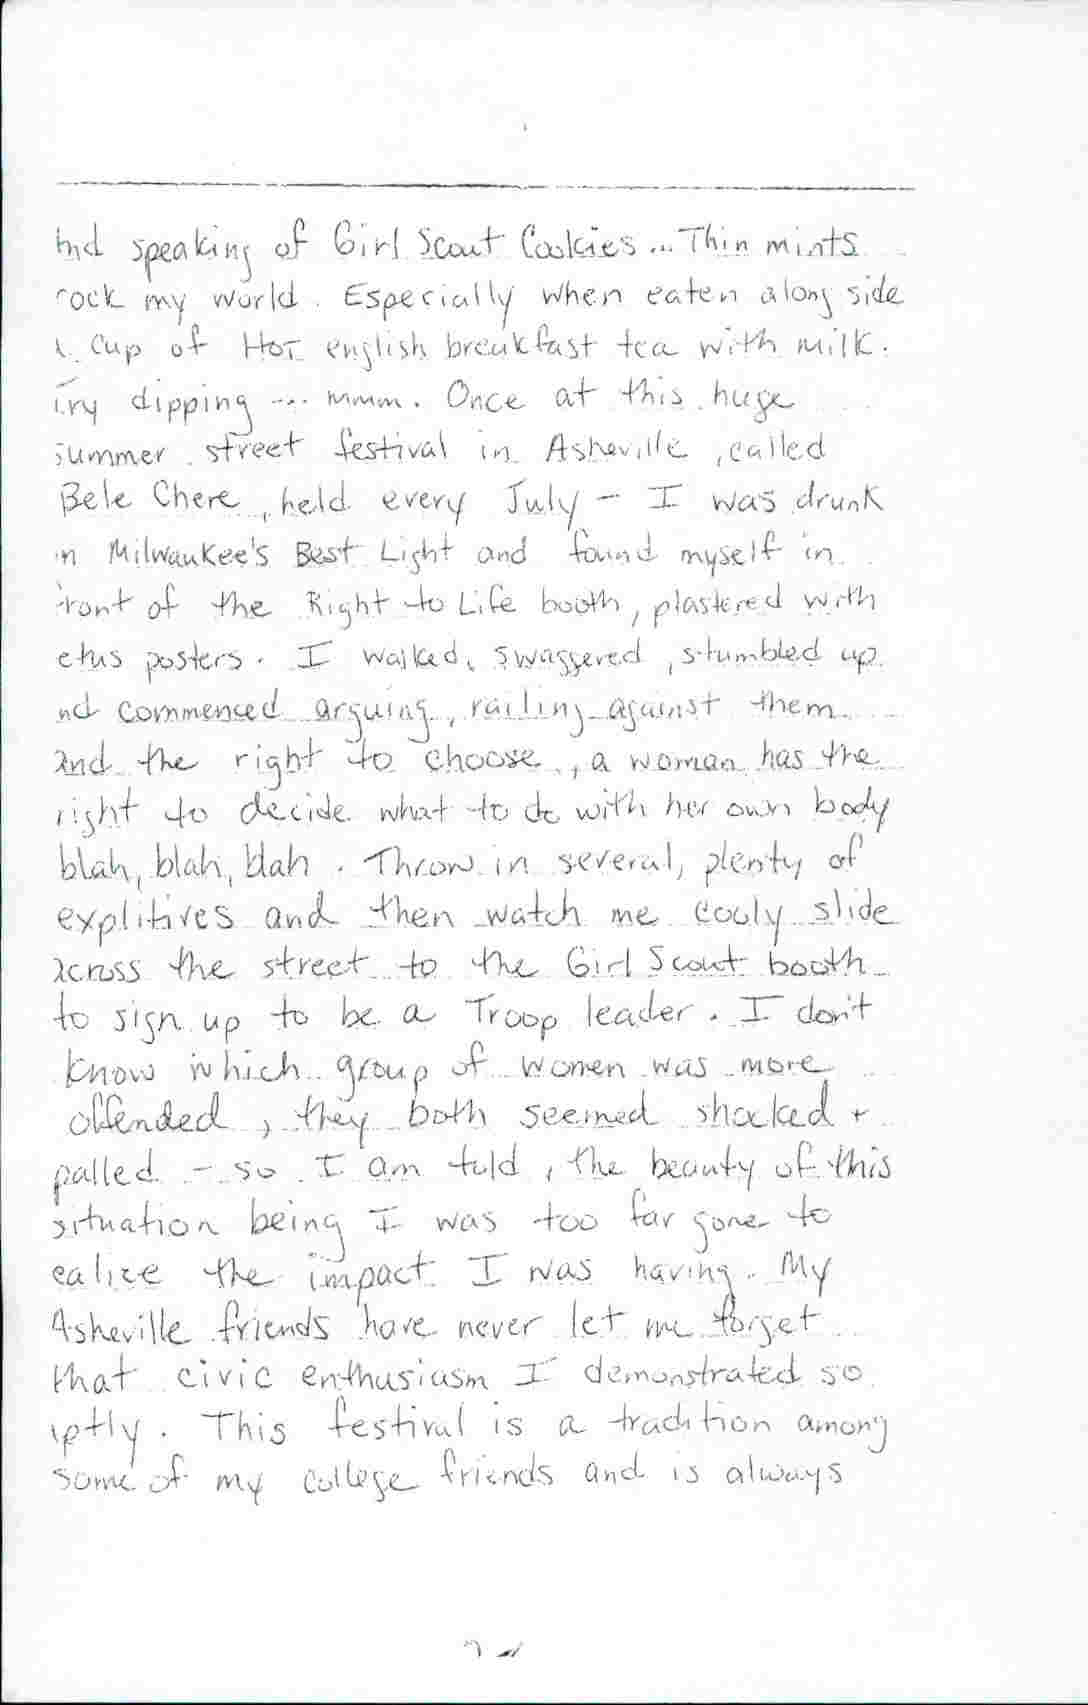 And speaking of Girl Scout Cookies... Thin mints
rock my world. Especially when eaten along side
a cup of Hot english breakfast tea with milk.
Try dipping --- mmm. Once at this huge
summer street festival in Asheville, called
Bele Chere, held every July - I was drunk
on Milwaukee's Best Light and found myself in
front of the Right to Life booth, plastered with
fetus posters. I walked, swaggered, stumbled up
and commenced arguing, railing against them
and the right to choose, a woman has the
right to decide what to do with her own body
blah, blah, blah. Throw in several, plenty of
explitives and then watch me cooly slide
across the street to the Girl Scout booth
to sign up to be a Troop leader. I don't
know which group of women was more
offended, they both seemed shocked +
palled - so I am told, the beauty of this
situation being I was too far gone to
realize the impact I was having. My
Asheville friends have never let me forget
that civic enthusiasm I demonstrated so
aptly. This festival is a tradition among
some of my college friends and is always